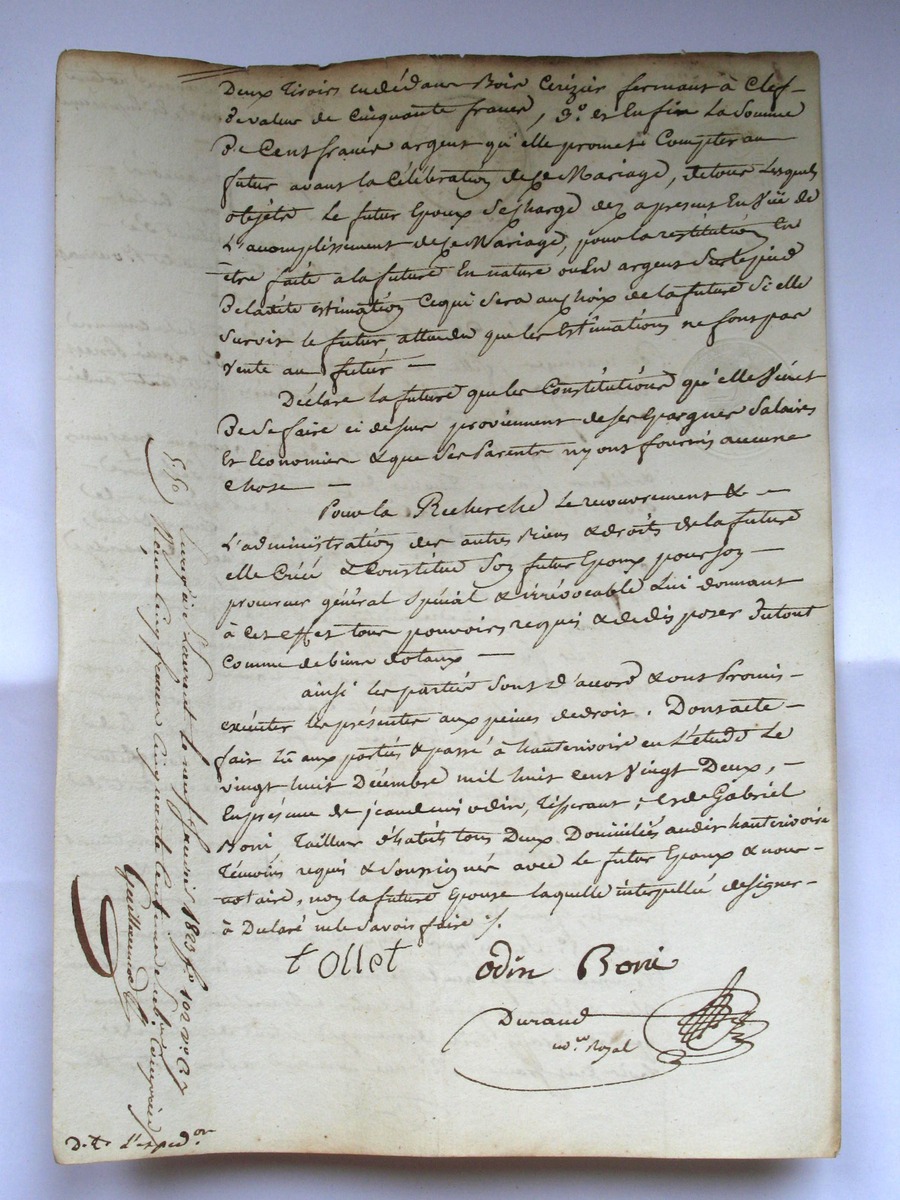 Deux tiroirs en dédans Bois Cerizier fermant à Clef -
De valeur de Cinquante francs, 3.º et Enfin La Somme
De Cent francs argent qu'elle promet Compter au
futur avant la Célébration de Ce Mariage, de tous Lesquels
objéts Le futur Epoux Se charge dez apresent En Vüe de
L'acomplissement de Ce Mariage, pour la restitution En
être faite a la future En nature ou En argent Sur le pied
De ladite estimation Ce qui Sera au choix de la future Si elle
Survit le futur attendu que les Estimations ne font pas
Vente au futur —
Déclare la future que les Constitutions qu'elle Vient
De Se faire ci dessus proviennent de ses Epargnes Salaires
Et Economies & que Ses Parents n'y ont fournis aucune
Chose —
Pour la Recherche Le recouvrement & —
L'administration des autres biens & droits de la future
elle Créé & Constitue Son futur Epoux pour Son —
procureur général Spécial & irrévocable Lui donnant
à Cet effet tous pouvoirs requis & de disposer du tout
Comme de biens dotaux —
ainsi les parties Sont d'accord & ont Promis -
exécuter les présentes aux peines de droit. Dont acte -
fait Lu aux parties & passé à hauterivoire en L'étude Le
vingt huit Décembre mil huit cent Vingt Deux, -
En présence de jean denis odin, Tisserant, et de Gabriel
Boni Tailleur d'habits tous Deux Domiciliés audit hauterivoire
Témoins requis & Soussignés avec Le futur Epoux & nous -
notaire, non la future Epouse laquelle interpellée de signer -
à Déclaré ne le Savoir faire ./.
tollet
odin Boni
Durand
no.re Royal
Laurent Le neuf janvier 1823 f.o 102 v.o C. 7
cinq francs cinquante centimes
Guillaume
D. t. d'exped.on